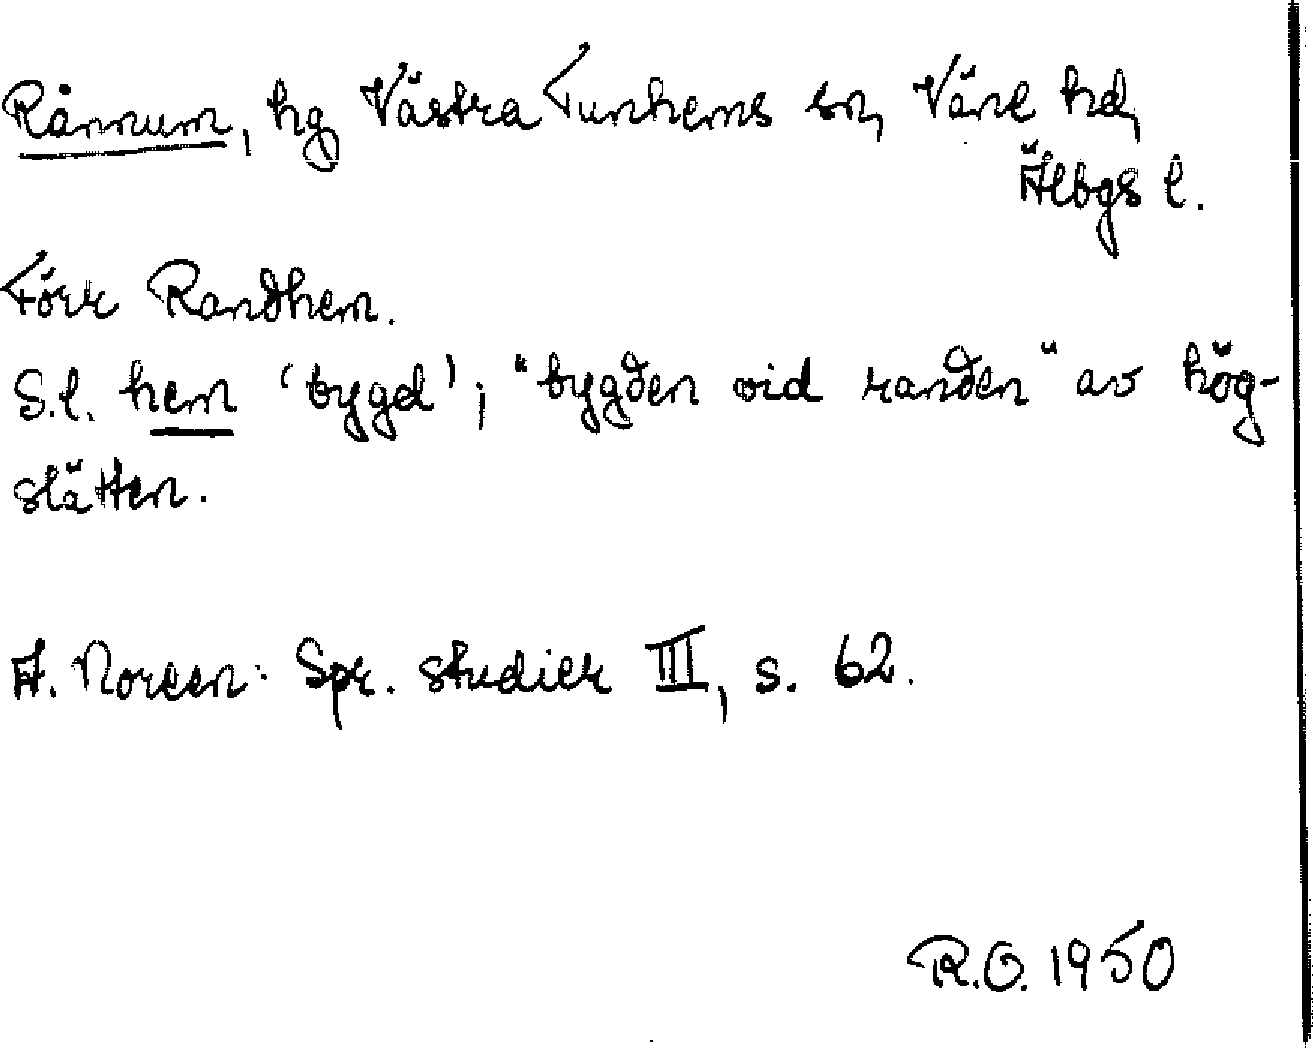 Rånnum, hg Västra Tunhems sn, Väne hd,
Älbgs l.
Förr Randhem.
S.l. hem ‘bygd’; “bygden vid randen” av hög-
slätten.
A. Noreen: Spr. studier III, s. 62.
R.O. 1950